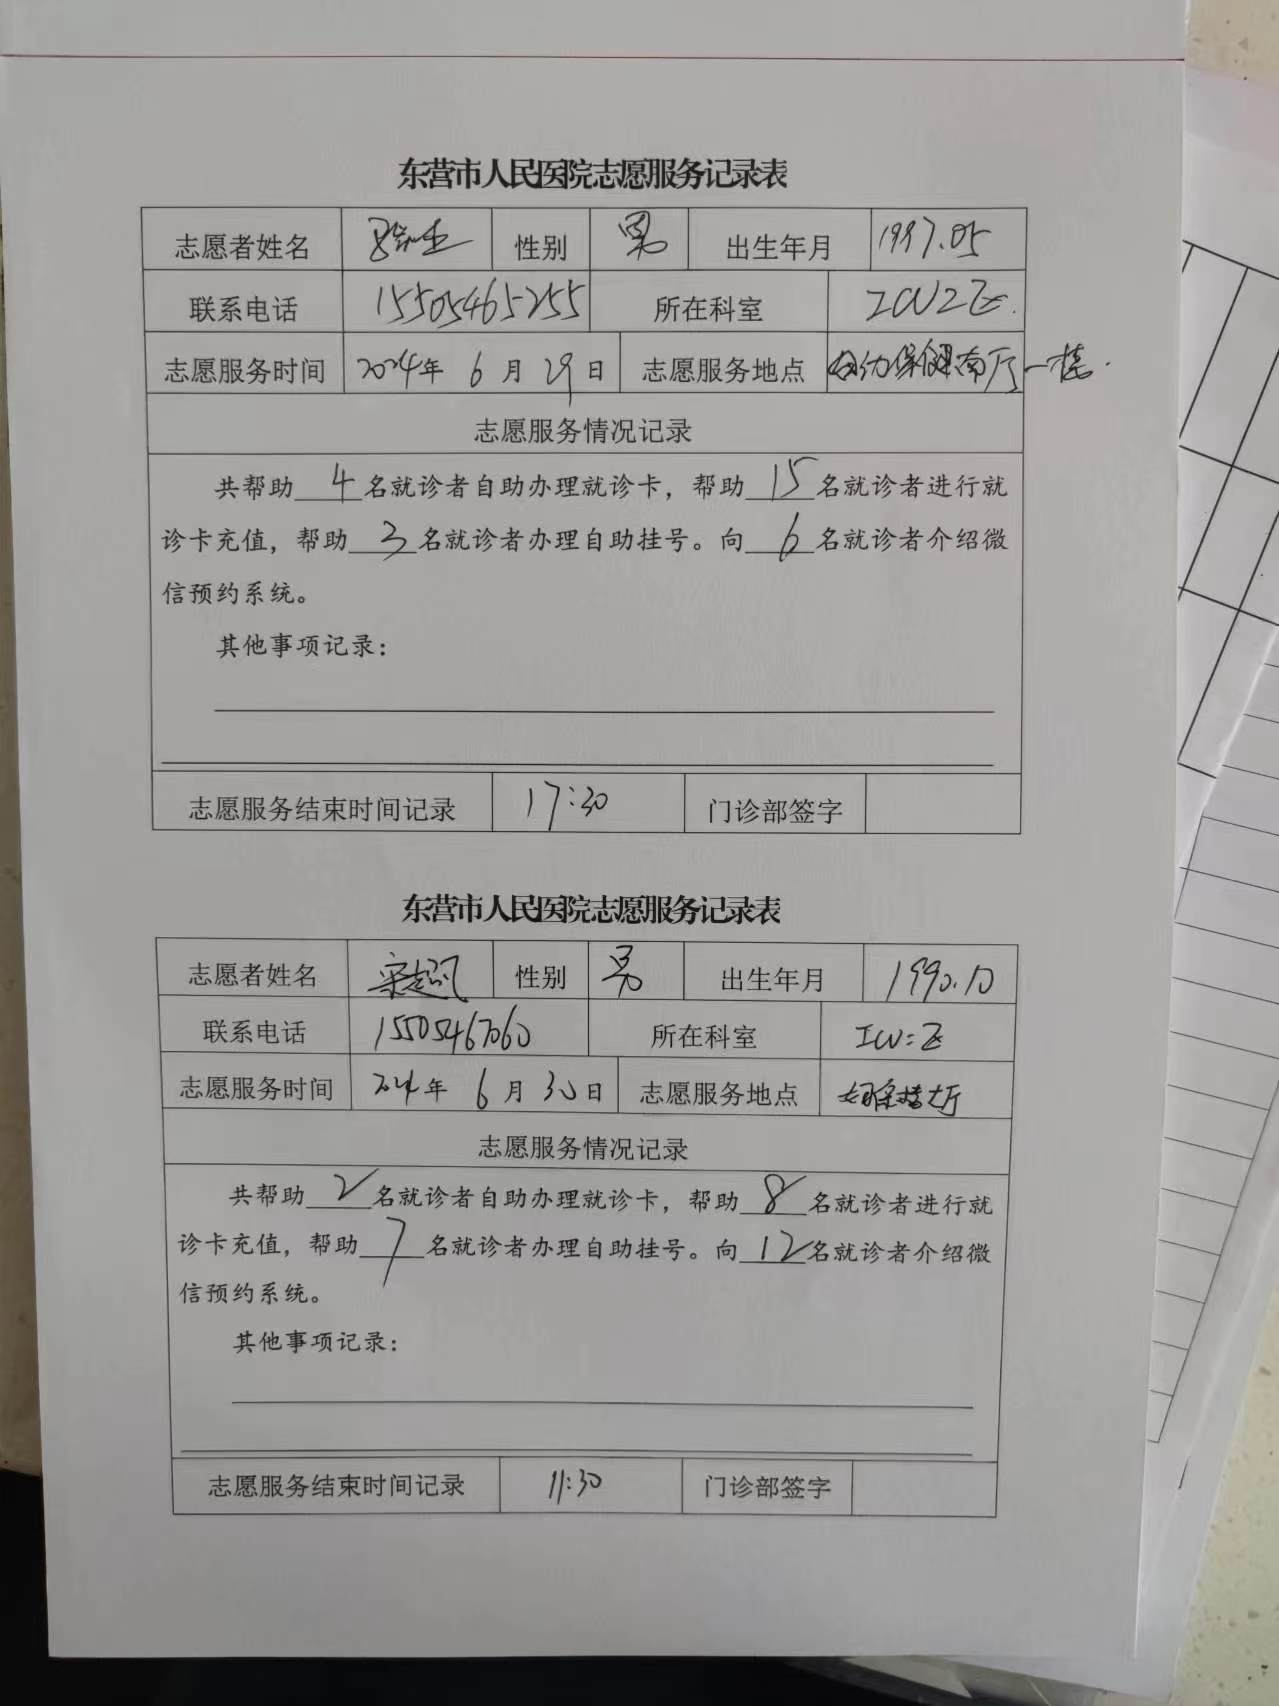 东营市人民医院志愿服务记录表
志愿者姓名 性别 男 出生年月 1997.05
联系电话 15505465255 所在科室 ICU2区.
志愿服务时间 2024年 6月 29日 志愿服务地点 妇幼保健南厅一楼.
志愿服务情况记录
共帮助 4 名就诊者自助办理就诊卡，帮助 15 名就诊者进行就
诊卡充值，帮助 3 名就诊者办理自助挂号。向 6 名就诊者介绍微
信预约系统。
其他事项记录：
志愿服务结束时间记录 17:30 门诊部签字
东营市人民医院志愿服务记录表
志愿者姓名 宋超凡 性别 男 出生年月 1990.10
联系电话 15505467060 所在科室 ICU二区
志愿服务时间 2024年 6月 30日 志愿服务地点 大厅
志愿服务情况记录
共帮助 2 名就诊者自助办理就诊卡，帮助 8 名就诊者进行就
诊卡充值，帮助 7 名就诊者办理自助挂号。向 12 名就诊者介绍微
信预约系统。
其他事项记录：
志愿服务结束时间记录 11:30 门诊部签字